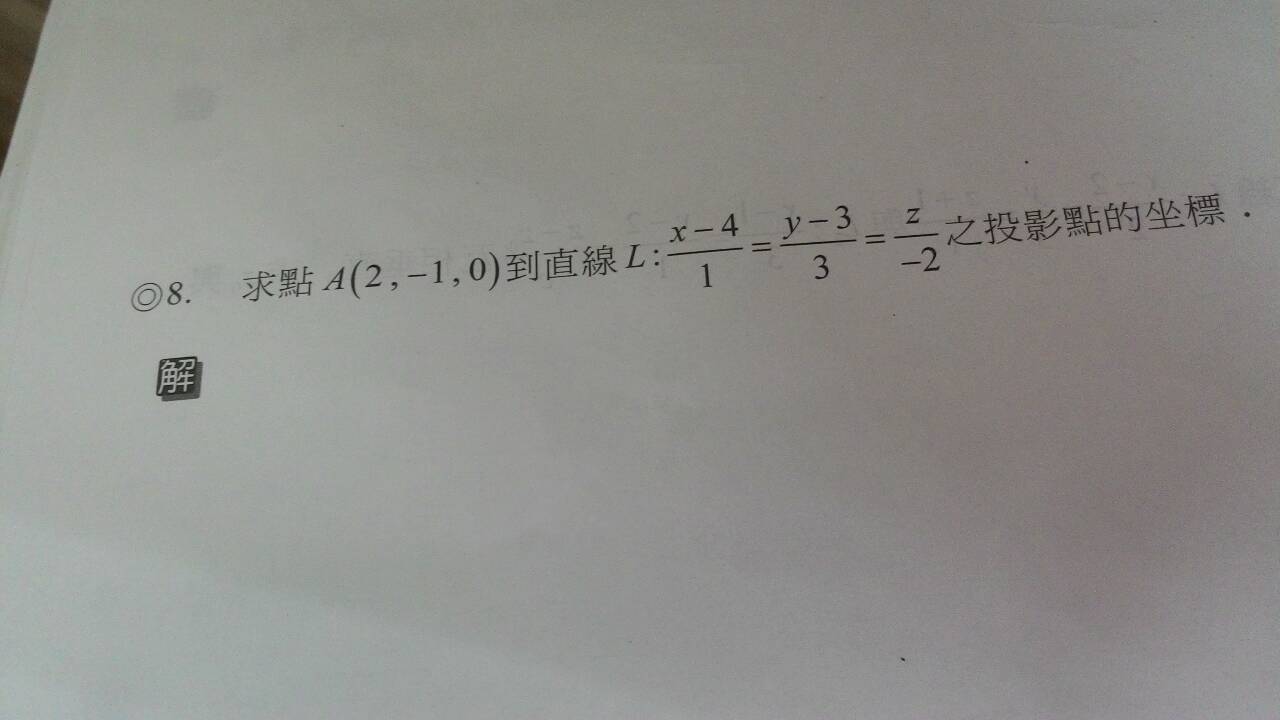 ◎8. 求點 A(2,-1,0)到直線 L:\frac{x-4}{1}=\frac{y-3}{3}=\frac{z}{-2}之投影點的坐標．
解